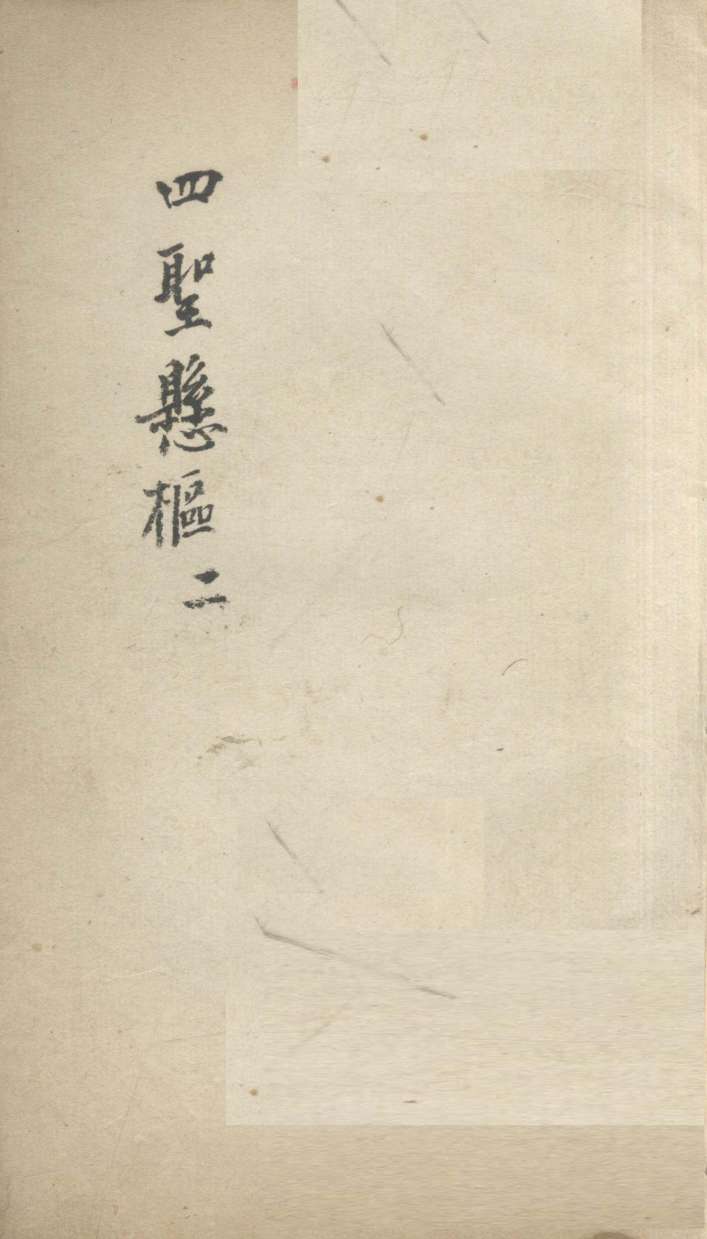 四聖懸樞二